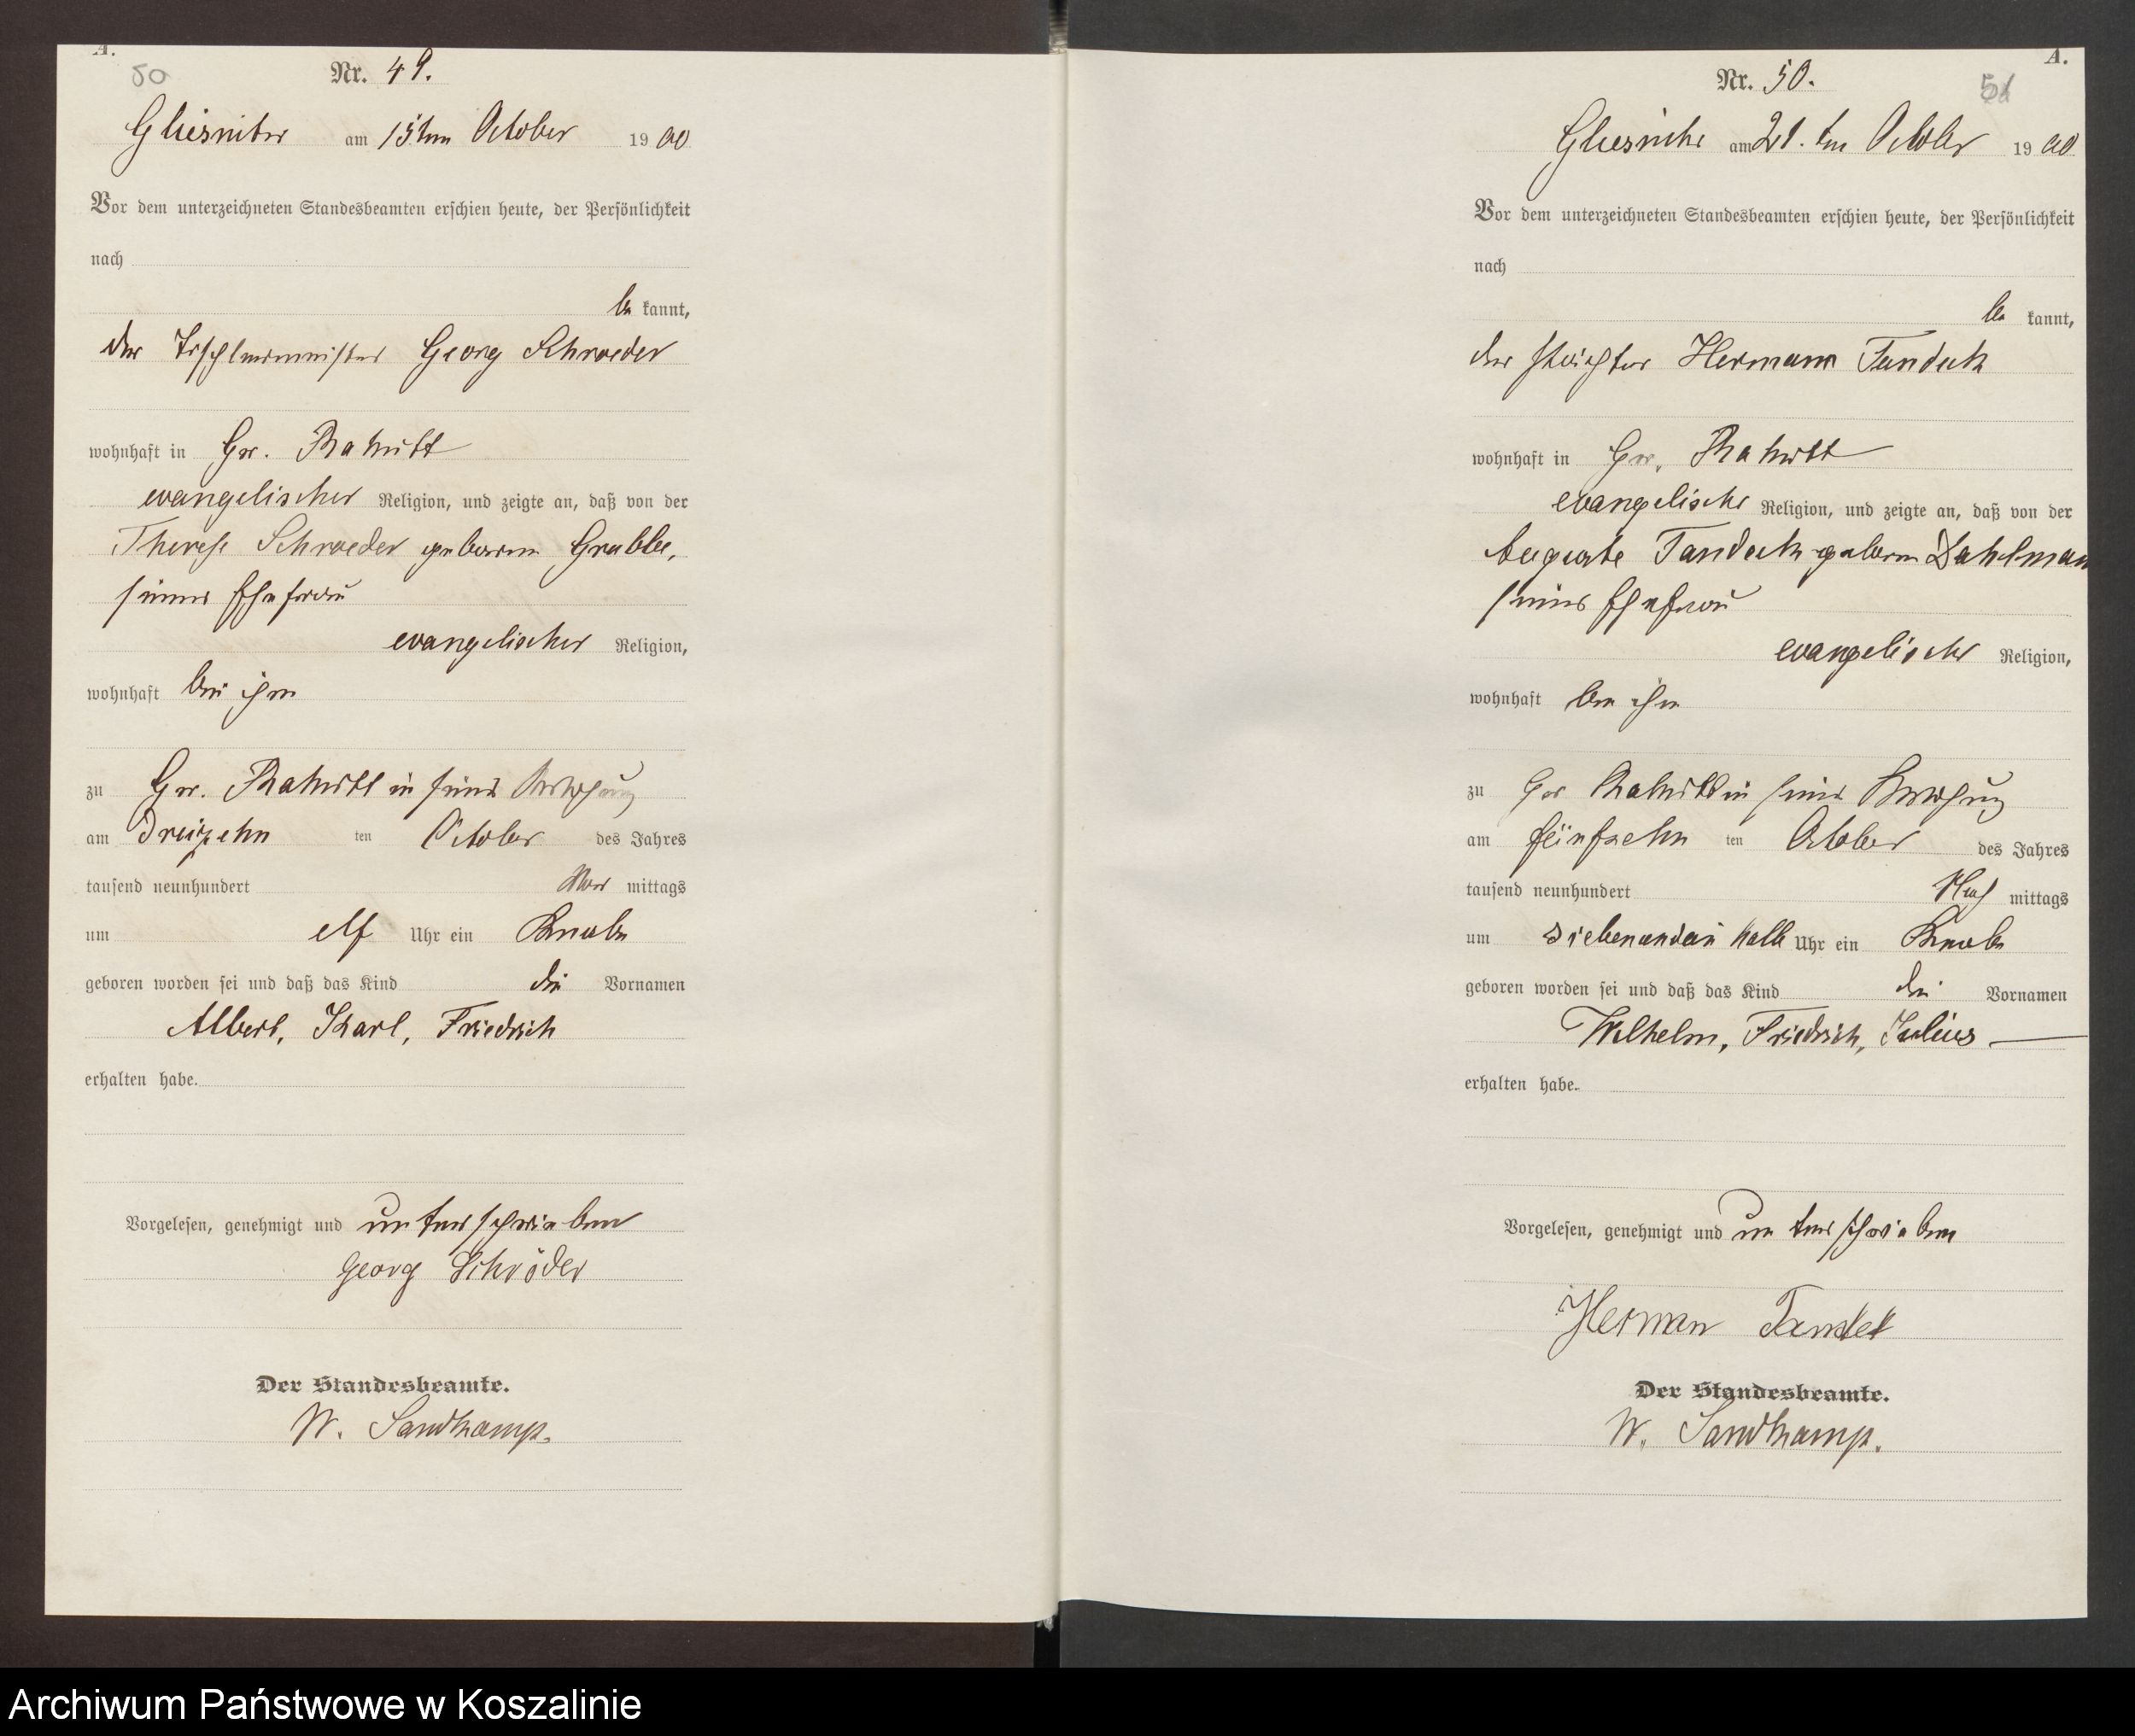 A.
50
Nr. 49.
Gliesnitz am 15ten October 1900
Vor dem unterzeichneten Standesbeamten erschien heute, der Persönlichkeit
nach
be kannt,
der Tischlermeister Georg Schroeder
wohnhaft in Gr. Rakitt
evangelischer Religion, und zeigte an, daß von der
Therese Schroeder geborene Grabbe,
seiner Ehefrau
evangelischer Religion,
wohnhaft bei ihm
zu Gr. Rakitt in seiner Behausung
am dreizehn ten October des Jahres
tausend neunhundert Vor mittags
um elf Uhr ein Knabe
geboren worden sei und daß das Kind die Vornamen
Albert, Karl, Friedrich
erhalten habe.
Vorgelesen, genehmigt und unterschrieben
Georg Schröder
Der Standesbeamte.
W. Sandkamp.
A.
51
Nr. 50.
Gliesnitz am 21. ten October 1900
Vor dem unterzeichneten Standesbeamten erschien heute, der Persönlichkeit
nach
be kannt,
der Hermann Tandeck
wohnhaft in Gr. Rakitt
evangelischer Religion, und zeigte an, daß von der
Auguste Tandeck geborene Dahlman
seiner Ehefrau
evangelischer Religion,
wohnhaft bei ihm
zu Gr Rakitt in seiner Behausung
am fünfzehn ten October des Jahres
tausend neunhundert Nach mittags
um siebenundein halb Uhr ein Knabe
geboren worden sei und daß das Kind die Vornamen
Wilhelm, Friedrich, Julius
erhalten habe.
Vorgelesen, genehmigt und unterschrieben
Herman
Der Standesbeamte.
W. Sandkamp.
Archiwum Państwowe w Koszalinie